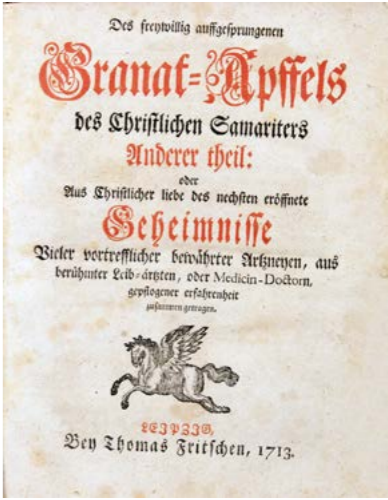 Des freywillig auffgesprungenen
Granat-Apffels
des Christlichen Samariters
Anderer theil:
oder
Aus Christlicher liebe des nechsten eröffnete
Geheimnisse
Vieler vortrefflicher bewährter Artzneyen, aus
berühmter Leib-ärtzten, oder Medicin-Doctorn,
gepflogener erfahrenheit
zusammen getragen.
LEIPZIG,
Bey Thomas Fritschen, 1713.